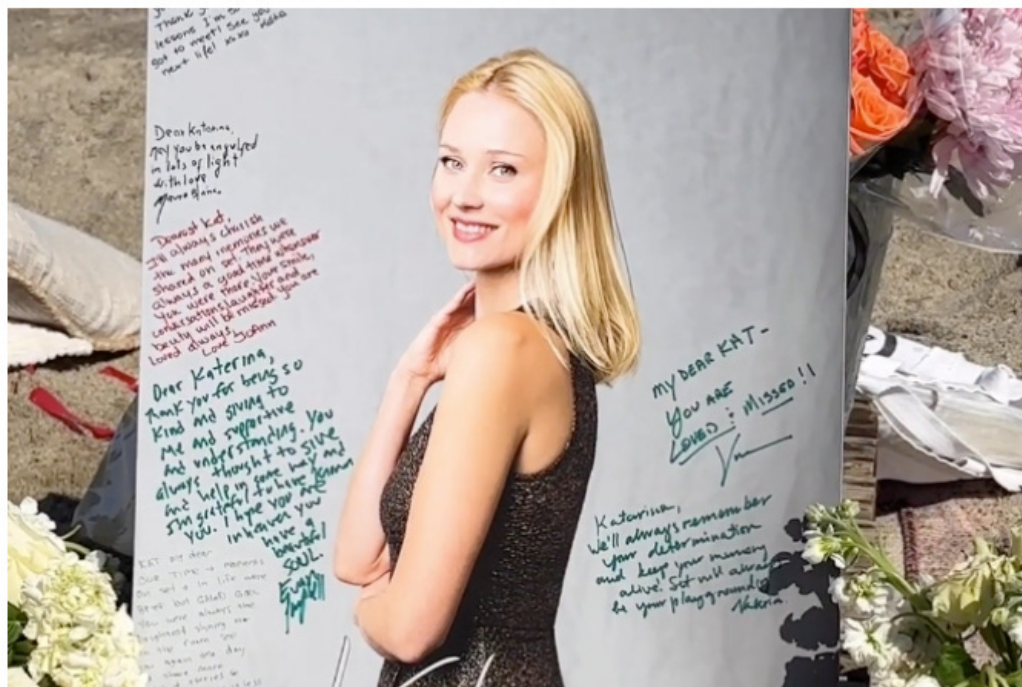 Thank
lessons I'm
got to meet! See you
next life! xoxo
Dear Katarina,
may you be engulfed
in lots of light
with love
Dearest Kat,
I'll always cherish
the many memories we
shared on set. They were
always a good time whenever
you were there. Your smile,
conversations, laughter and
beauty will be missed. You are
loved always.
Love JoAnn
Dear Katerina,
Thank you for being so
kind and giving to
me and supportive
and understanding. You
always thought to give
and help in some way and
I'm grateful to have known
you. I hope you are
in heaven you
have a
beautiful
soul.
KAT my dear
our time + moments
on set + in life were
brief but
you were always the
brightest shining
the room
again one day
share more
MY DEAR KAT-
YOU ARE
LOVED & MISSED!!
Katarina,
We'll always remember
your determination
and keep your memory
alive. Set will always
be your playground